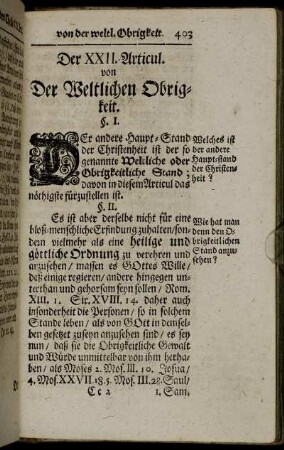 von der weltl. Obrigkeit. 403
Der XXII. Articul.
von
Der Weltlichen Obrig-
keit.
§. I.
DEr andere Haupt-Stand
der Christenheit ist der so
genannte Weltliche oder
Obrigkeitliche Stand;
davon in diesem Articul das
nöthigste fürzustellen ist.
Welches ist
der andere
Haupt-stand
der Christen-
heit?
§. II.
Es ist aber derselbe nicht für eine
bloß-menschliche Erfindung zuhalten/son-
dern vielmehr als eine heilige und
göttliche Ordnung zu verehren und
anzusehen/ massen es GOttes Wille/
daß einige regieren/ andere hingegen un-
terthan und gehorsam seyn sollen/ Rom.
XIII. 1. Sir. XVIII. 14. daher auch
insonderheit die Personen/ so in solchem
Stande leben/ als von GOtt in demsel-
ben gesetzet zuseyn anzusehen sind/ es sey
nun/ daß sie die Obrigkeitliche Gewalt
und Würde unmittelbar von ihm herha-
ben/ als Moses 2. Mos. III. 10. Josua/
4. Mos. XXVII. 18. 5. Mos. III. 28. Saul/
Wie hat man
denn den O-
brigkeitlichen
Stand anzu-
sehen?
Cc 2 1. Sam.